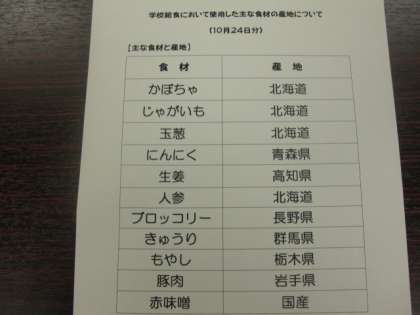 学校給食において使用した主な食材の産地について
(10月24日分)
[主な食材と産地]
食材 産地
かぼちゃ 北海道
じゃがいも 北海道
玉葱 北海道
にんにく 青森県
生姜 高知県
人参 北海道
ブロッコリー 長野県
きゅうり 群馬県
もやし 栃木県
豚肉 岩手県
赤味噌 国産